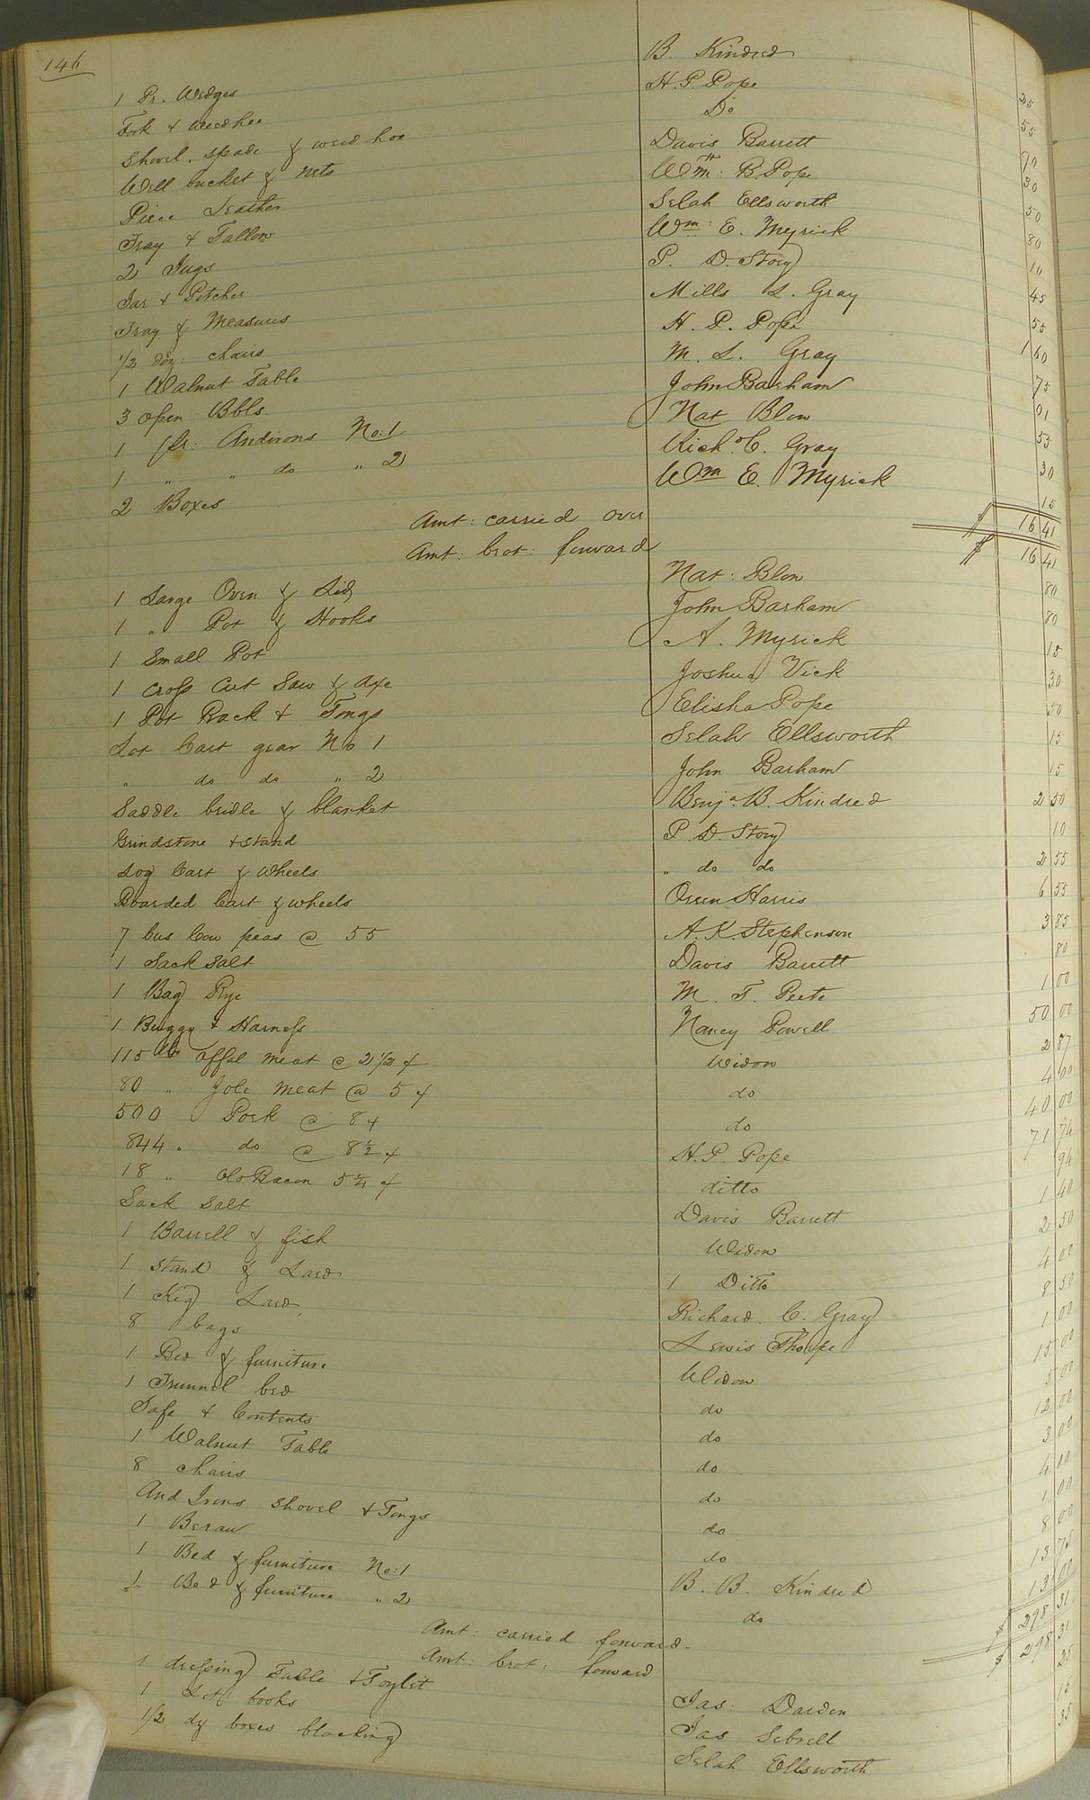 146
1 Pr. Wedges B. Kindred 25
Fork & weedhoe H. P. Pope 55
Shovel. spade & weed hoe Do 70
Well bucket & nets Davis Barrett 30
Piece Leather Wm: H B. Pope 50
Tray & Tallow Selah Ellsworth 80
2 Jugs Wm: E. Myrick 10
Jar & Pitcher P. D. Story 45
Tray & Measures Mills L. Gray 55
1/2 doz: chairs H. P. Pope 1 60
1 Walnut Table M. L. Gray 75
3 open Bbls. John Barham 01
1 pr: Andirons No: 1 Nat Blow 53
1 " " do " 2 Richd C. Gray 30
2 Boxes Wm E. Myrick 15
Amt: carried over $ 16 41
Amt: brot: forward $ 16 41
1 Large Oven & Lid Nat: Blow 80
1 " Pot & Hooks John Barham 80
1 Small Pot A. Myrick 15
1 Cross Cut Saw & Axe Joshua Vick 30
1 Pot Rack & Tongs Elisha Pope 50
Lot Cart gear No 1 Selah Ellsworth 15
" do do " 2 John Barham 15
Saddle bridle & blanket Benja. B. Kindred 2 50
Grindstone & stand P. D. Story 10
Log Cart & Wheels " do do 2 55
Boarded Cart & wheels Orren Harris 6 55
7 bus Cow peas @ 55 A. K. Stephenson 3 85
1 Sack Salt Davis Barrett 80
1 Bag Rye M. T. Peete 1 00
1 Buggy & Harness Nancy Powell 50 00
115 lbs offal meat @ 2 1/2 ¢ Widow 2 87
80 " Jole meat @ 5 ¢ do 4 00
500 Pork @ 8 ¢ do 40 00
844 " do @ 8 1/2 ¢ H. P. Pope 71 74
18 " Old Bacon 5 1/4 ¢ ditto 94
Sack Salt Davis Barrett 1 40
1 Barrell & fish Widow 2 50
1 Stand & Lard 1 Ditto 4 00
1 Keg Lard Richard. C. Gray 8 50
8 bags Lewis Thorpe 1 00
1 Bed & furniture Widow 15 00
1 Trunnel bed do 5 00
Safe & Contents do 12 00
1 Walnut Table do 3 00
8 chairs do 4 00
And Irons Shovel & Tongs do 1 00
1 Beraw do 8 00
1 Bed & furniture No: 1 B. B. Kindred 13 75
1 Bed & furniture " 2 do 13 00
Amt: carried forward $ 298 31
Amt: brot: forward $ 298 31
1 dressing Table & Toylit Jas: Darden 25
1 Lot books Jas Sebrell 15
1/2 dz boxes blacking Selah Ellsworth 35